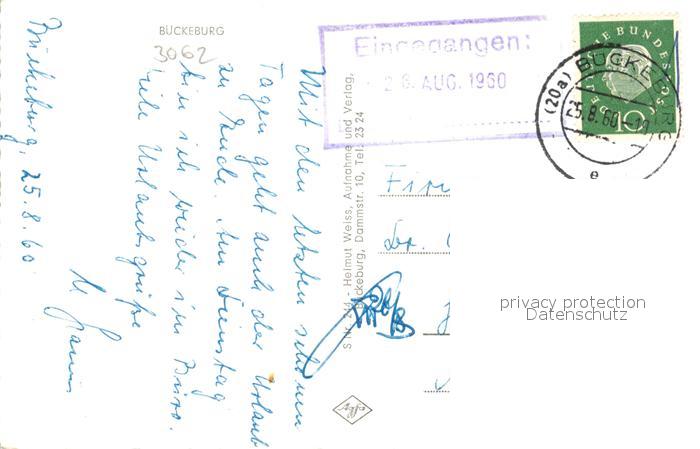 BÜCKEBURG
3062
Bückeburg, 25.8.60
Mit den letzten schönen
Tagen geht auch der Urlaub
zu Ende. Am Dienstag
bin ich wieder im Büro.
Viele Urlaubsgrüße
Eingegangen:
26. AUG. 1960
Helmut Weiss, Aufnahme und Verlag,
Bückeburg, Dammstr. 10, Tel. 23 24
DEUTSCHE BUNDESPOST
10
(20a) BÜCKEBURG
25.8.60
e
Fir
Dr.
Agfa
privacy protection
Datenschutz